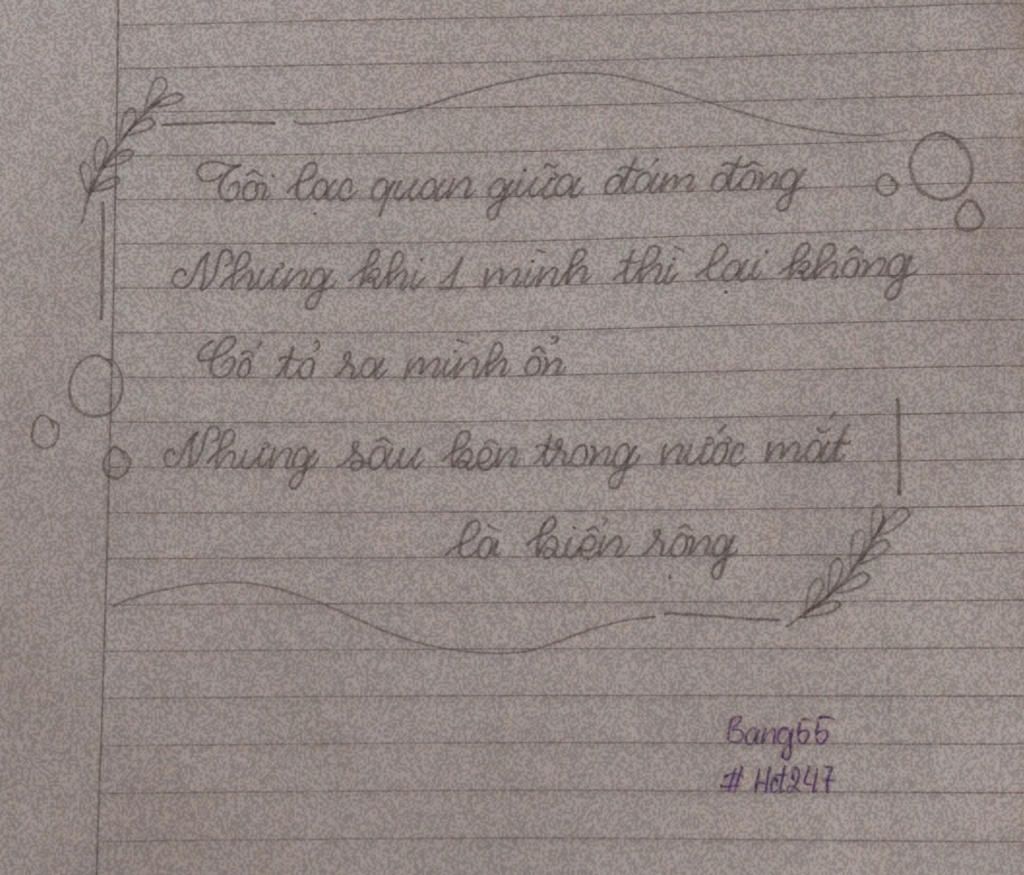 Tôi lạc quan giữa đám đông
Nhưng khi 1 mình thì lại không
Cố tỏ ra mình ổn
Nhưng sâu bên trong nước mắt
là biển rộng
Bang55
# Hct247